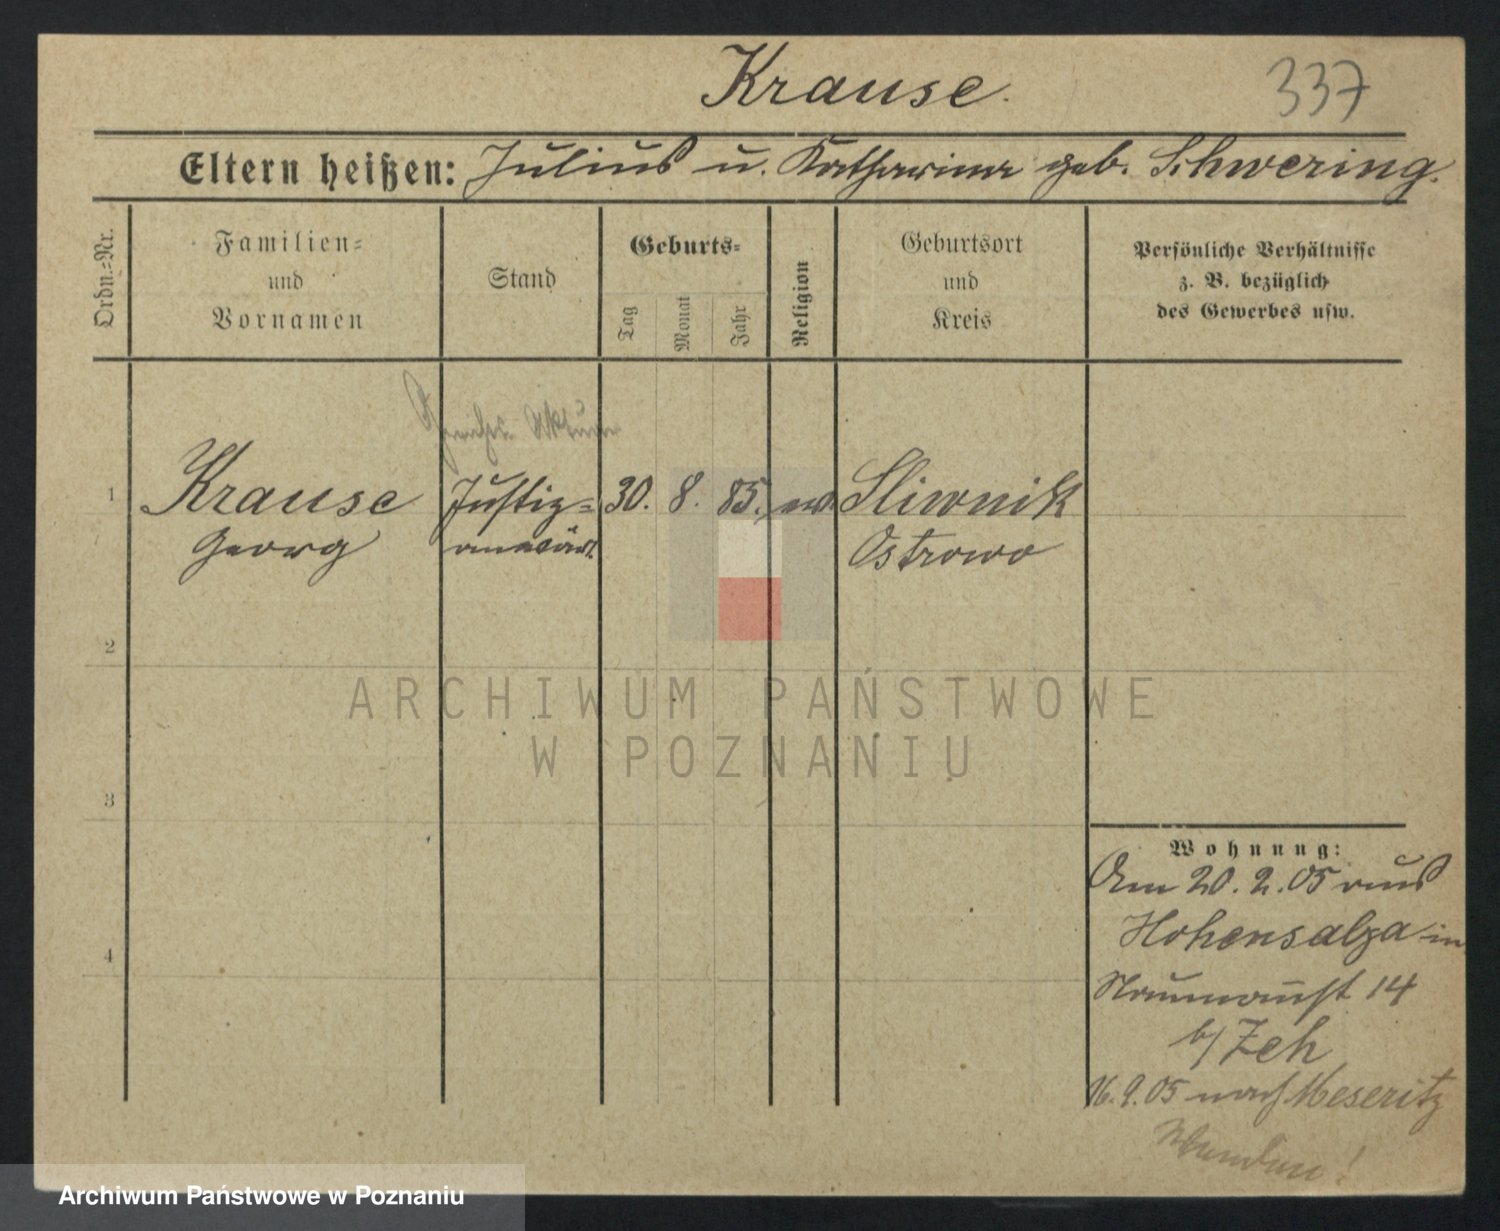 Krause.
337
Eltern heißen: Julius u. Katharina geb. Schwering.
Ordn.=Nr.
Familien=
und
Vornamen
Stand
Geburts=
Tag
Monat
Jahr
Religion
Geburtsort
und
Kreis
Persönliche Verhältnisse
z. B. bezüglich
des Gewerbes usw.
1
Krause
Georg
Justiz=
anwärt.
30. 8. 85.
ev.
Sliwnik
Ostrowo
2
3
4
Wohnung:
Am 20. 2. 05 aus
Hohensalza in
Naumannst 14
b/ Zeh
16. 9. 05 nach Meseritz
Wenden!
ARCHIWUM PAŃSTWOWE
W POZNANIU
Archiwum Państwowe w Poznaniu